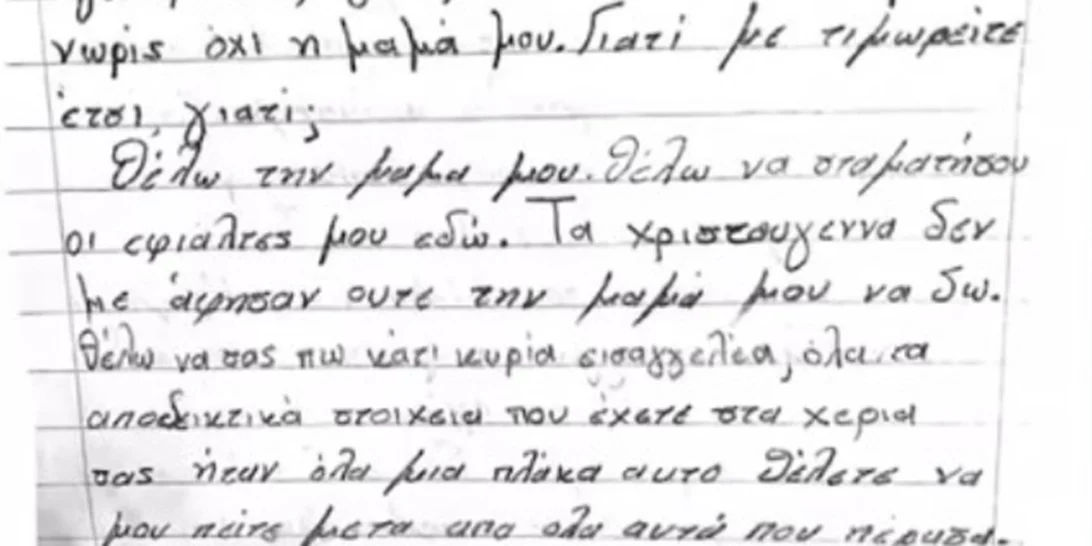 νωρίς όχι η μαμά μου. Γιατί με τιμωρείτε
έτσι, γιατί;
Θέλω την μαμα μου. Θέλω να σταματήσου
οι εφιάλτες μου εδώ. Τα χριστουγεννα δεν
με άφησαν ουτε την μαμά μου να δω.
Θέλω να σας πω κάτι κυρία εισαγγελέα, όλα τα
αποδικτικά στοιχεια που έχετε στα χερια
σας ήταν όλα μια πλάκα αυτο θέλετε να
μου πείτε μετα απο ολα αυτά που πέρασα.